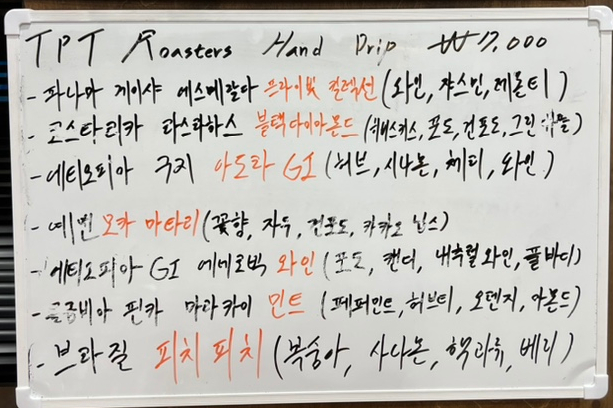 TPT Roasters Hand Drip ₩17,000
- 파나마 게이샤 에스메랄다 프라이빗 컬렉션 (와인, 쟈스민, 레몬티)
- 코스타리카 라스라하스 블랙다이아몬드 (히비스커스, 포도, 건포도, 그린)
- 에티오피아 구지 아도라 G1 (허브, 시나몬, 체리, 와인)
- 예멘 모카 마타리 (꽃향, 자두, 건포도, 카카오 닙스)
- 에티오피아 G1 에어로빅 와인 (포도, 캔디, 내추럴와인, 풀바디)
- 콜롬비아 핀카 마라카이 민트 (페퍼민트, 허브티, 오렌지, 아몬드)
- 브라질 피치 피치 (복숭아, 시나몬, 핵과류, 베리)